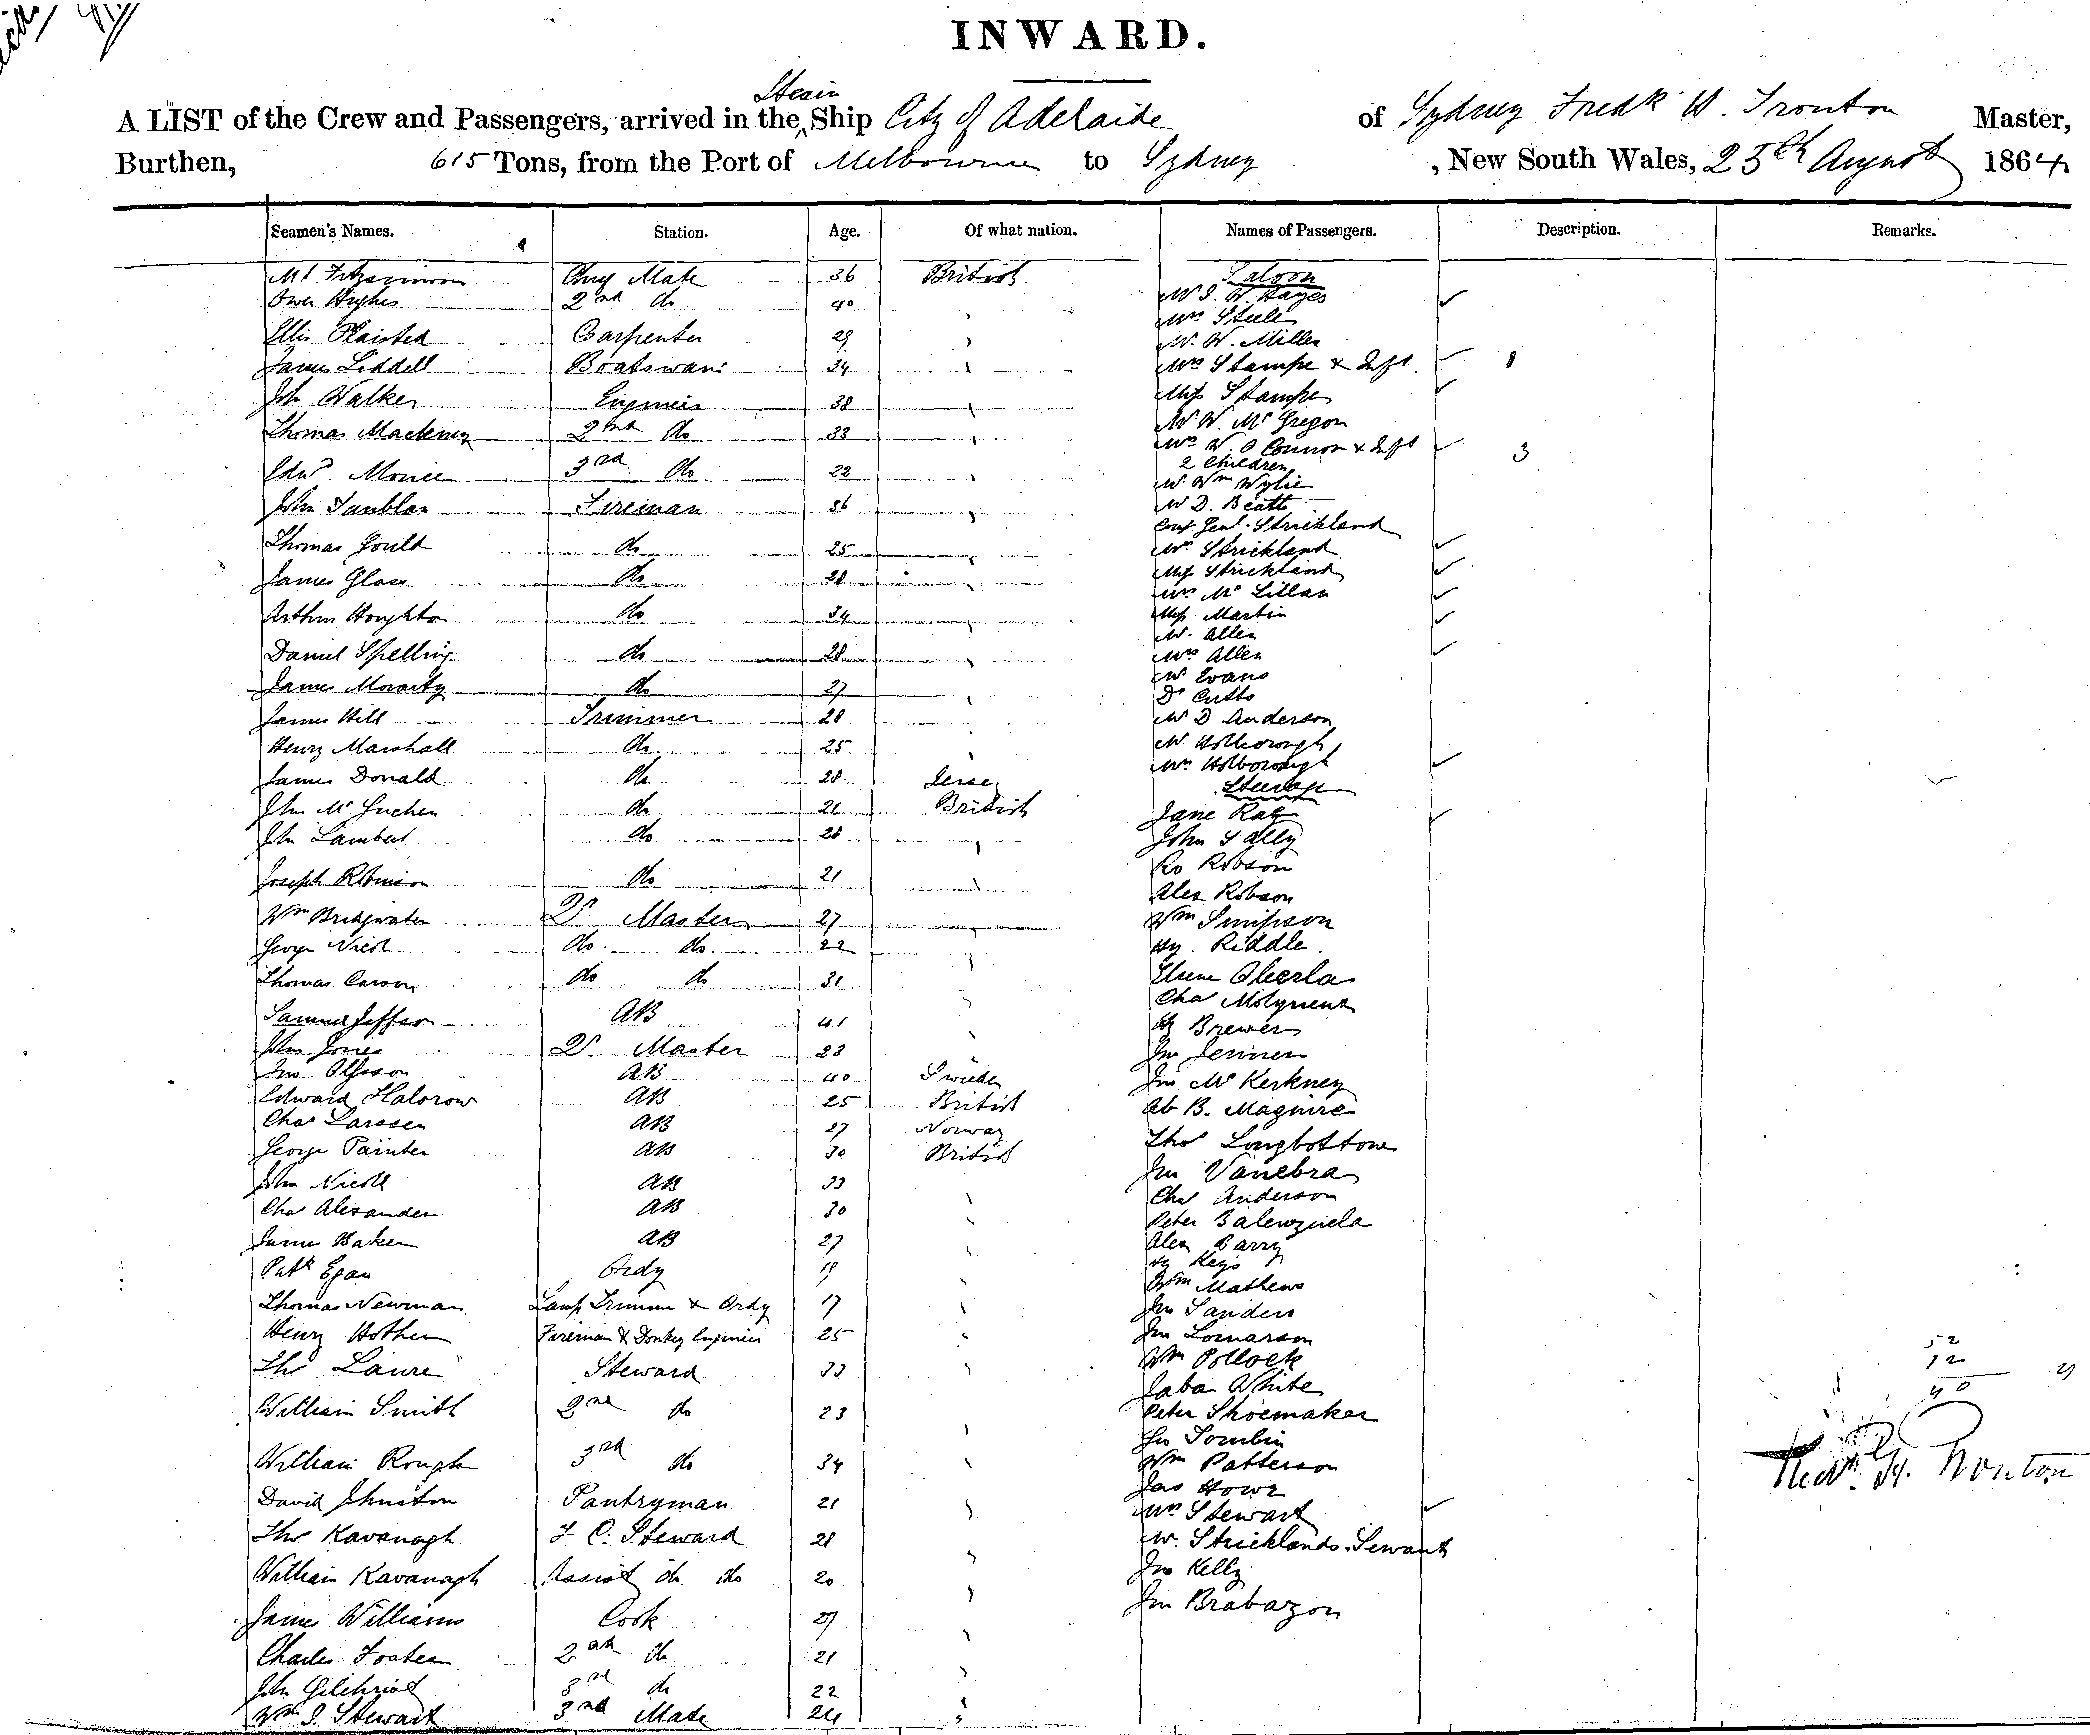 INWARD.
Steam
A LIST of the Crew and Passengers, arrived in the Ship City of Adelaide of Sydney Fredk W. Trouton Master,
Burthen, 615 Tons, from the Port of Melbourne to Sydney , New South Wales, 25th August 1864
Seamen's Names. Station. Age. Of what nation. Names of Passengers. Description. Remarks.
Saloon
Mate 36 British
Owen Hughes 2nd do 40 Hayes
Mrs Steele
Ellis Plaisted Carpenter 29 W. Miller
James Liddell Boatswain 34 Mrs Stampe & Inft 1
Jn Walker Engineer 38 Miss Stampe
Thomas 2nd do 33 W. McGregor
Mrs O Connor & Inft 3
2 Children
Edwd 3rd do 22 Wm Wylie
John Fireman 36 D. Beatt
Genl. Strickland
Thomas Gould do 25 Mrs Strickland
James Glass do 28 Miss Strickland
Mrs McLillan
Arthur Houghton do 34 Miss Martin
Mr Allen
Daniel Spelling do 28 Mrs Allen
Mr Evans
James Moriarty do 27 Dr Cutts
James Hill Trimmer 28 Mr D Anderson
Henry Marshall do 25 Mr Holborough
Mrs Holborough
James Donald do 28 Steerage
John do 21 British Jane
Jn Lambert do 28 John Sally
Ro Robson
Joseph Robinson do 21 Alex Robson
Wm Bridgwater Qr Master 27 Wm Simpson
George Nicol do do 22 Hy Riddle
Thomas Carson do do 31
Samuel Jefferson AB 41 Cha Molyneux
Hy Brewer
John Jones Qr Master 23 Jno
Jno Olsson AB 40 Sweden Jno McKerkney
Edward Halcrow AB 25 British Ab B. Maguire
Chas Larssen AB 27 Norway
George Painter AB 30 British Thos Longbottom
John Nicoll AB 33 Jno Vanebra
Chas Alexander AB 30 Chas Anderson
Peter Balenzuela
James Baker AB 27 Alex Barry
Patk Egan Ordy 19 Hy Keys
Wm Mathews
Thomas Newman Lamp Trimmer & Ordy 17 Jno Sanders
Henry Fireman & Donkey Engineer 25 Jno
Thos Steward 33 Wm Pollock
White
William Smith 2nd do 23 Peter Shoemaker
Jno
William Rough 3rd do 34 Wm Patterson
Jas Howe
David Johnston Pantryman 21 Mrs Stewart
Thos Kavanagh F. C. Steward 28 Stricklands Servant
William Kavanagh Assist do do 20 Jno Kelly
James Williams Cook 27 Jno Brabazon
Charles Foster 2nd do 21
John Gilchrist 3rd do 22
Wm J. Stewart 3rd Mate 24
52
12
40
Fredk W. Trouton